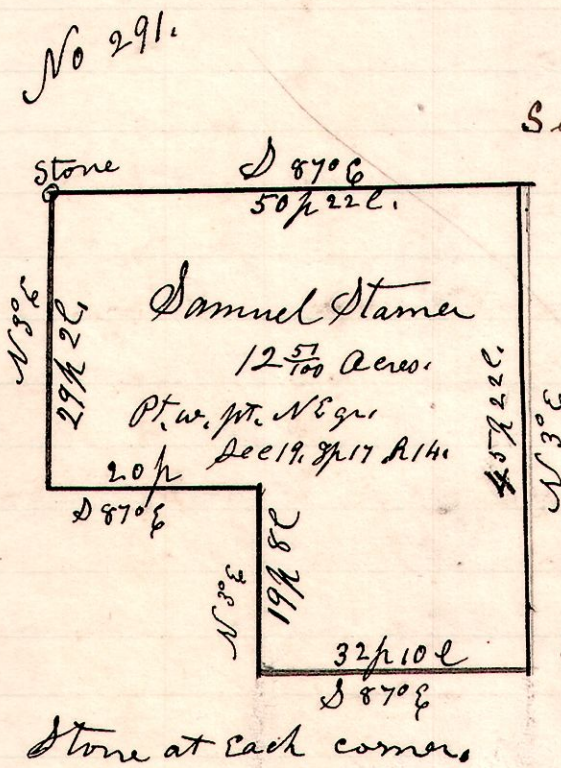 No 291.
Stone
S 87° E
50 p 22 l.
N 3° E
29 p 2 l.
Samuel Stamer
12 57/100 Acres.
Pt. w. pt. N E qr.
Sec 19. Tp 17. R 14.
45 p 22 l.
N 3° E
20 p
S 87° E
N 3° E
19 p 8 l
32 p 10 l
S 87° E
Stone at Each corner.